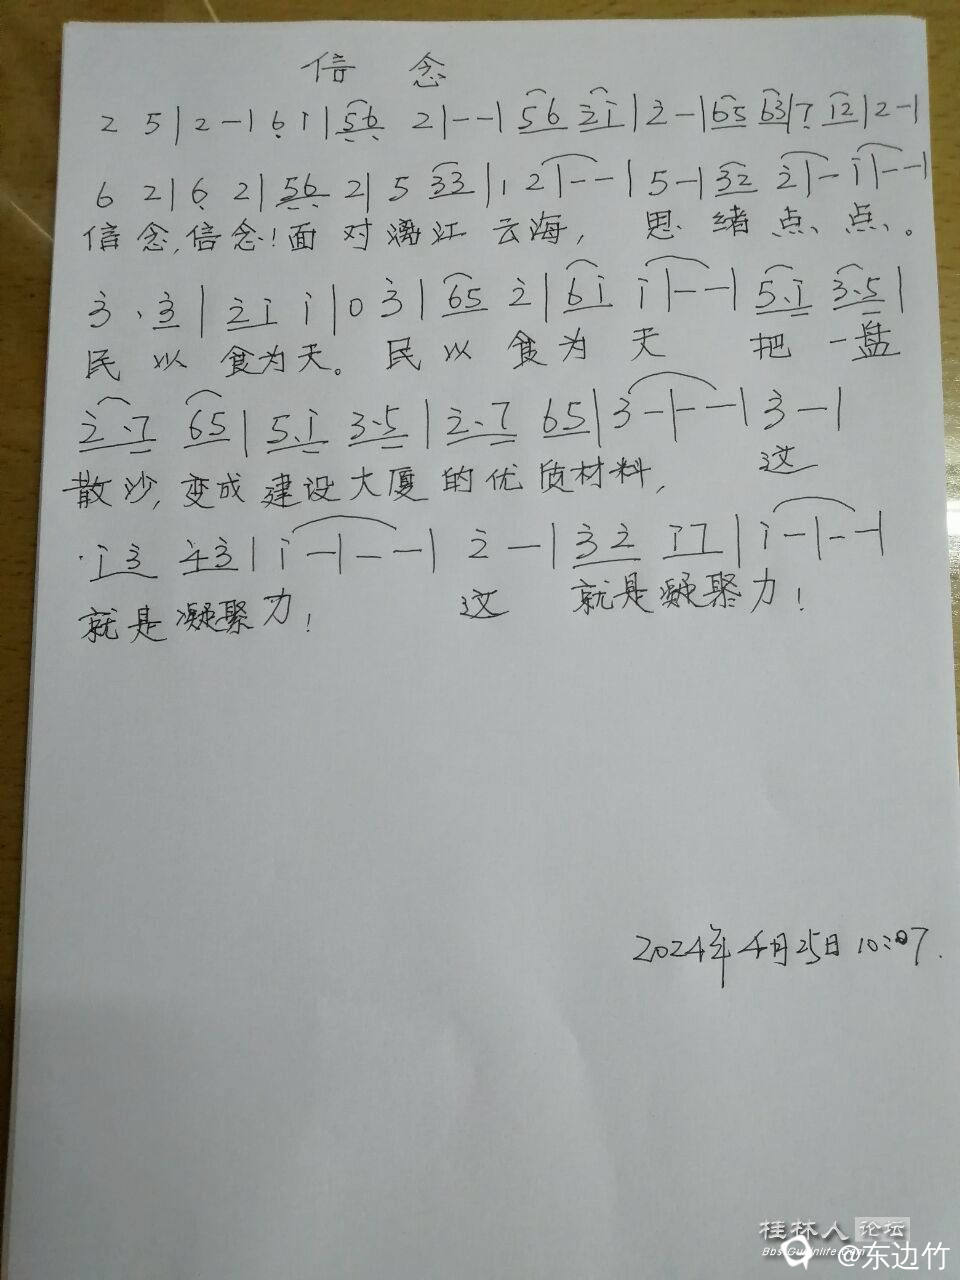 信 念
2 5 | 2 - | 6 1 | 56 2 | - - | 56 2i | 2 - | 65 63 | 7 12 | 2 - |
6 2 | 6 2 | 56 2 | 5 33 | 1 2 | - - | 5 - | 32 2 | - i | - - |
信念,信念!面对漓江云海, 思绪点点。
3 . 3 | 2i i | 0 3 | 65 2 | 6i i | - - | 5.i 3.5 |
民以食为天。民以食为天 把一盘
2.7 65 | 5.i 3.5 | 2.7 65 | 3 - | - - | 3 - |
散沙,变成建设大厦的优质材料, 这
i3 43 | i - | - - | 2 - | 32 i7 | i - | - - |
就是凝聚力! 这 就是凝聚力!
2024年4月25日10:07.
桂林人论坛
Bbs.Guilinlife.Com
@东边竹